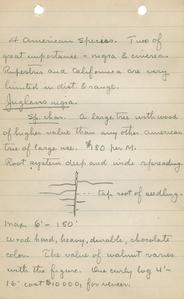 4 American Species. Two of
great importance = nigra & cinerea.
Rupestris and Californica are very
limited in dist. & range.
Juglans nigra.
Sp. char. A large tree with wood
of higher value than any other American
tree of large use. $150 per M.
Root system deep and wide spreading.
tap root of seedling.
max 6' - 150'
wood hard, heavy, durable, chocolate
color. The value of walnut varies
with the figure. One curly log 4'-
16' cost $10000, for veneer.